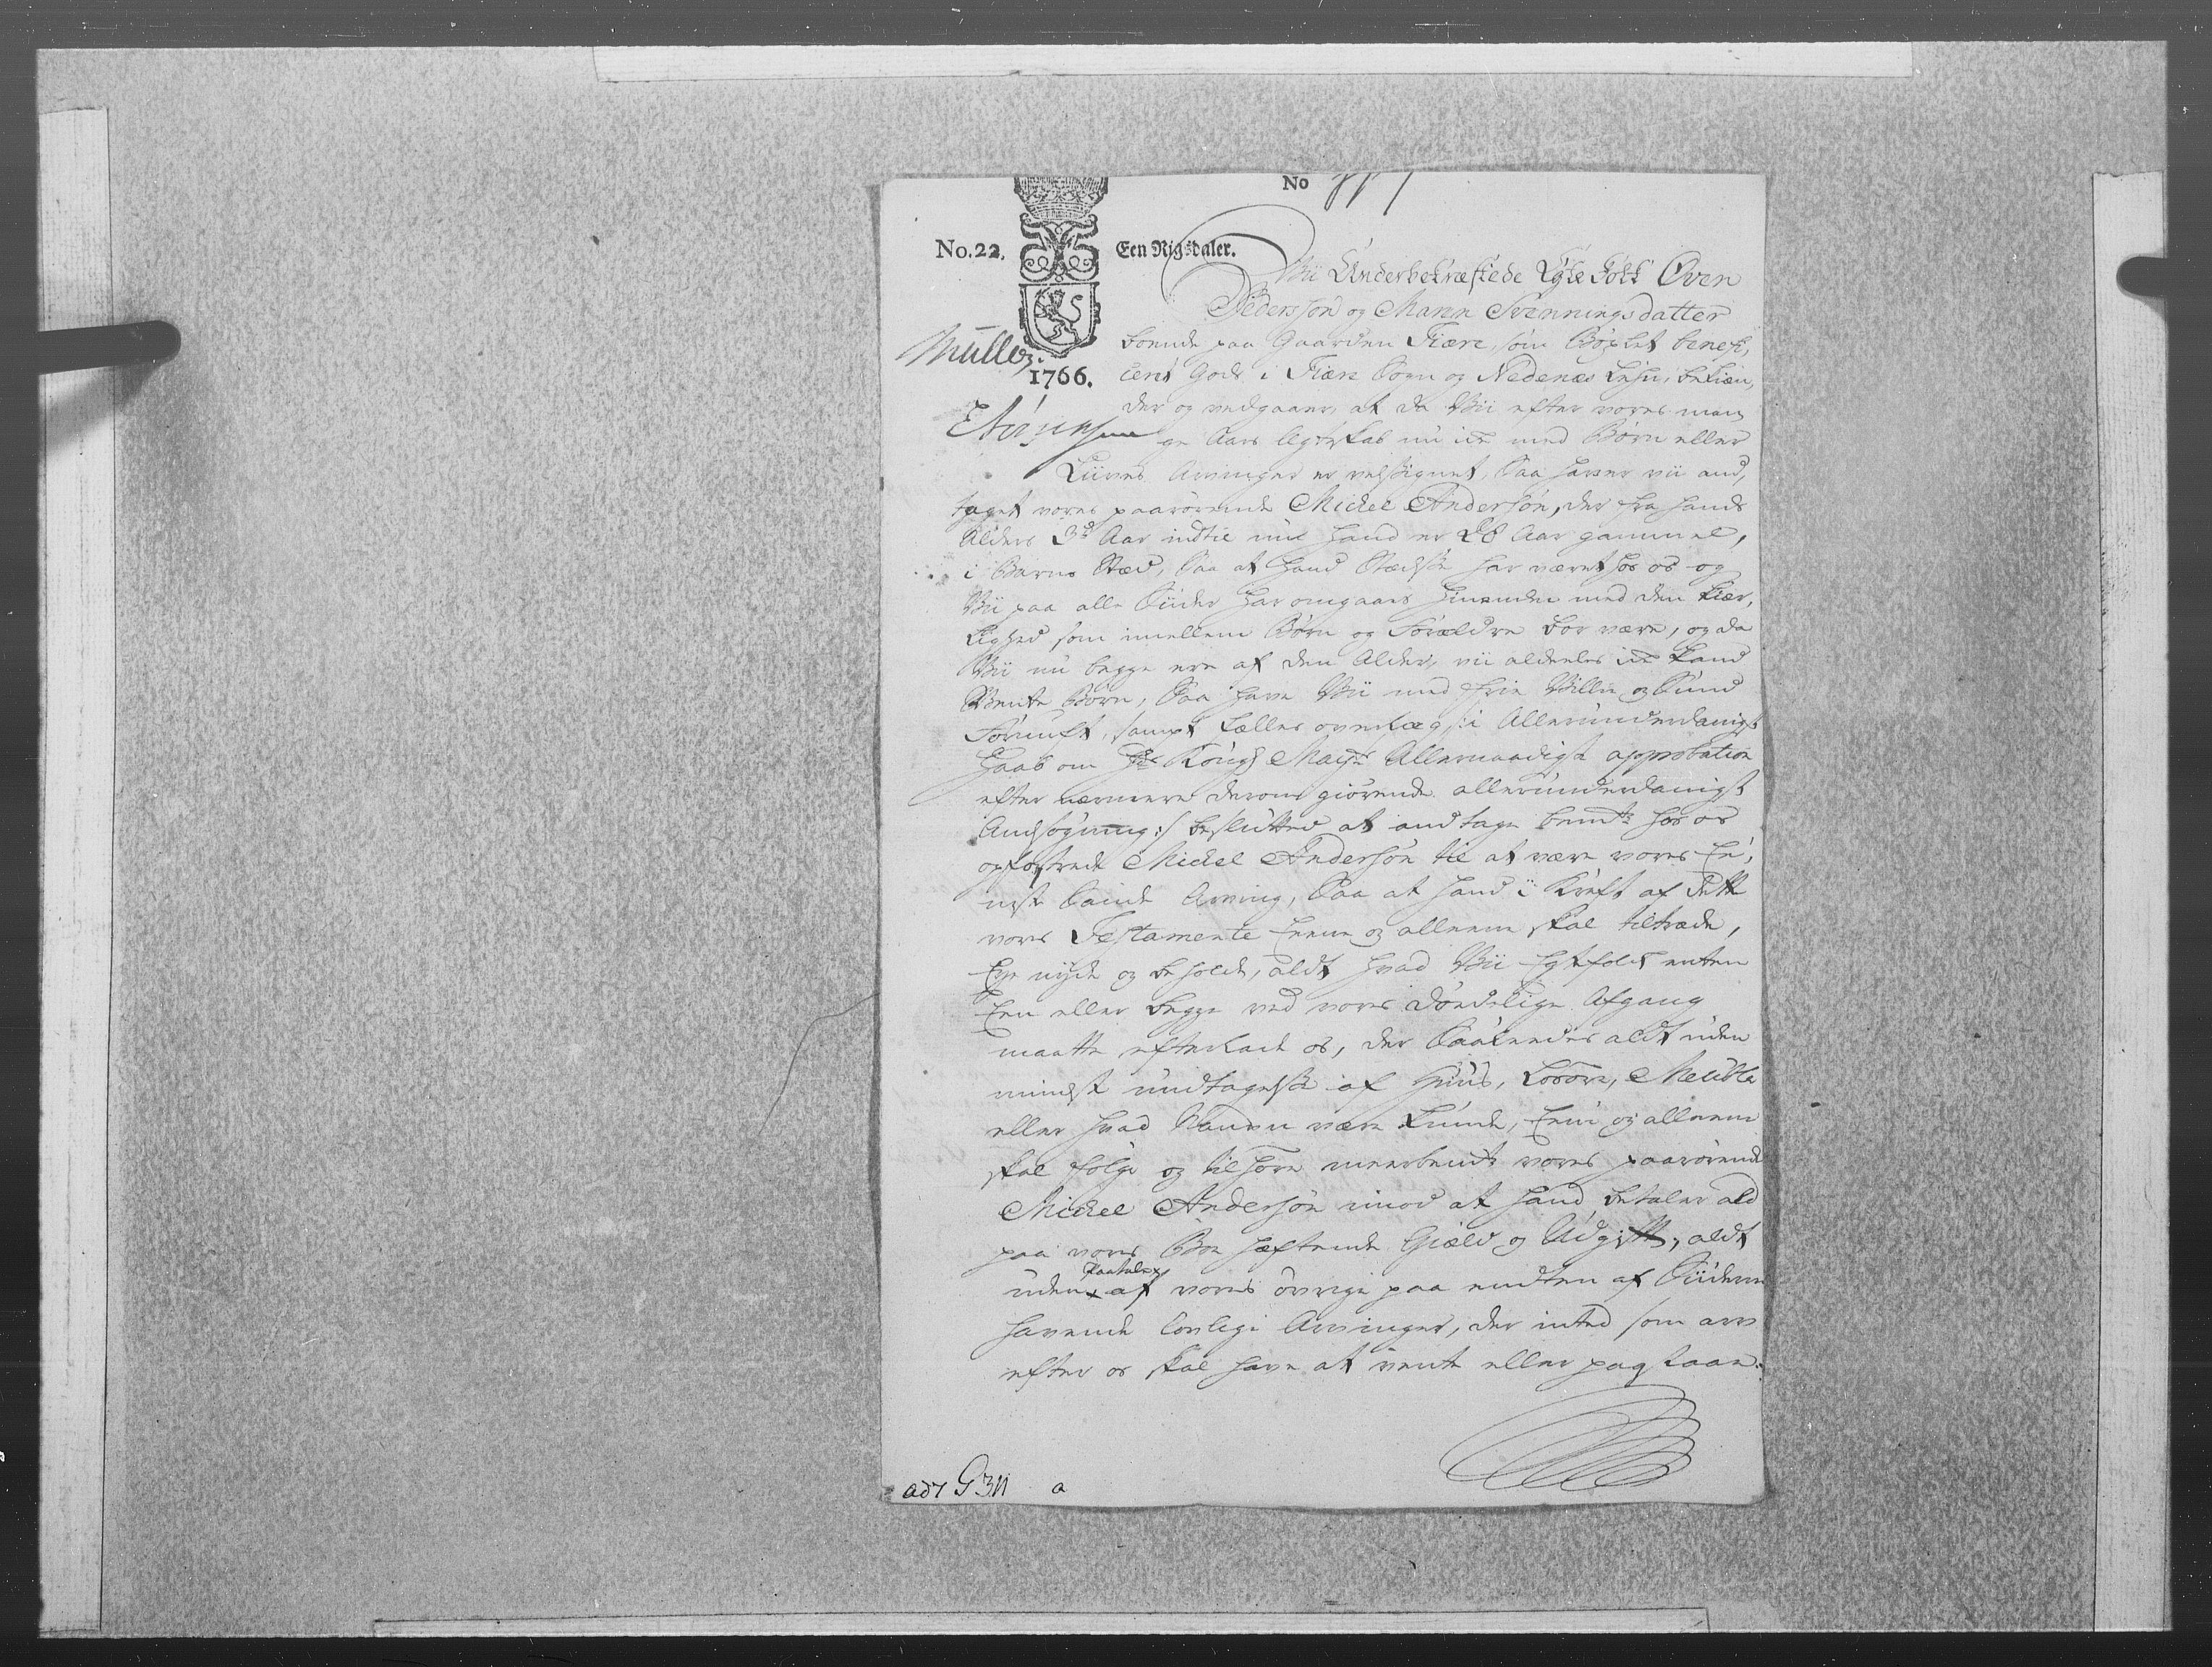 No
No. 22.
Een Rigsdaler.
Müller
1766.
Wii Underbekræftede Egte Folk Oven
Pedersson og Maren Svenningsdatter
boende paa Gaarden Fiære, som Bøxlet benefi,
ceret Gods i Fiære Sogn og Nedenæs Lehn, bekien,
der og vedgaaer, at da Wii efter vores man,
ge Aars Egteskab nu icke med Børn eller
Liivs Arvinger er velsignet, Saa haver vii and,
taget vores paarørende Michel Andersøn, der fra hands
Alders 3de Aar indtil nu hand er 28 Aar gammel,
i Barns Stæd, Saa at hand Stædse har været hos os og
Wii paa alle Siider har omgaaes hinanden med den kiær,
lighed som imellem Børn og Forældre bør være, og da
Wii nu begge ere af den Alder, vii aldeeles icke kand
Vente Børn, Saa have Wii med frie Villie og Sund
Fornuft, sampt fælles overlæg, /: i Allerunderdanigst
Haab om Hs Kongl Mayts Allernaadigst approbation
efter nærmere derom giørende allerunderdanigst
Ansøgning :/ beslutted at andtage bemte hos os
opfostrede Michel Andersøn til at være vores Ee,
nest Sande Arving, Saa at hand i Kraft af dette
vores Testamente Eene og alleene skal tiltræde,
Eye nyde og beholde, aldt hvad Wii Egtefolk enten
Een eller begge ved vores dødelige Afgang
maatte efterlade os, der Saaledes aldt uden
mindste undtagelse af Huus, Løsøre, Meuble
eller hvad Navn være kunde, Eene og alleene
skal følge og tilhøre meerbemte vores paarørende
Michel Andersøn imod at hand betaler ald
paa vores Boe hæftende Giæld og Udgifter, aldt
Paatale
uden af vores øvrige paa enten af Siiderne
havende lovlige Arvinger, der inted som arv
efter os skal have at vente eller paastaae:
ad 7 G 311 a